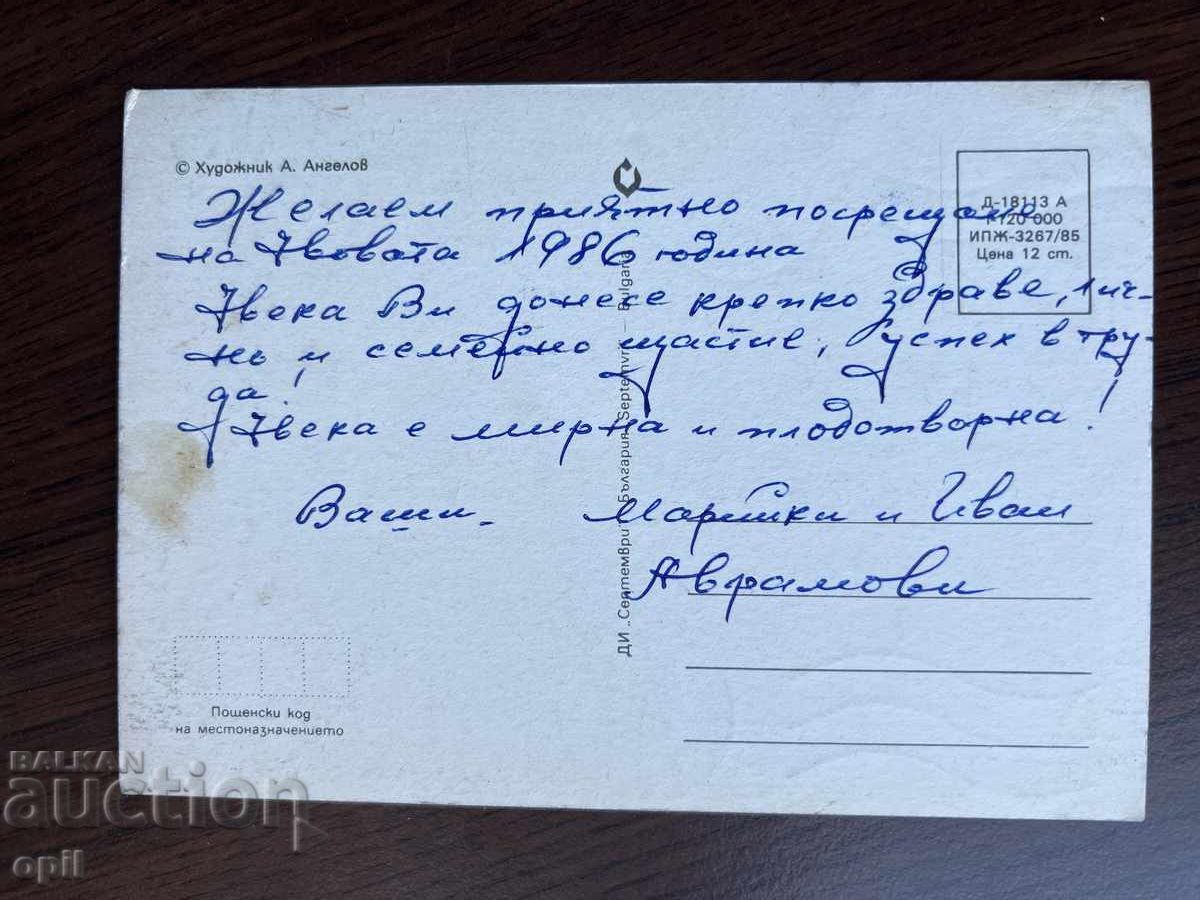 © Художник А. Ангелов
Д-18113 А
120 000
ИПЖ-3267/85
Цена 12 ст.
Желаем приятно посрещане
на Новата 1986 година
Нека Ви донесе крепко здраве, лич-
но и семейно щастие, успех в тру-
да!
Нека е мирна и плодотворна!
Ваши Марийки и Иван
Аврамови
ДИ „Септември" България Septemvri — Bulgaria
Пощенски код
на местоназначението
BALKAN
auction
opil